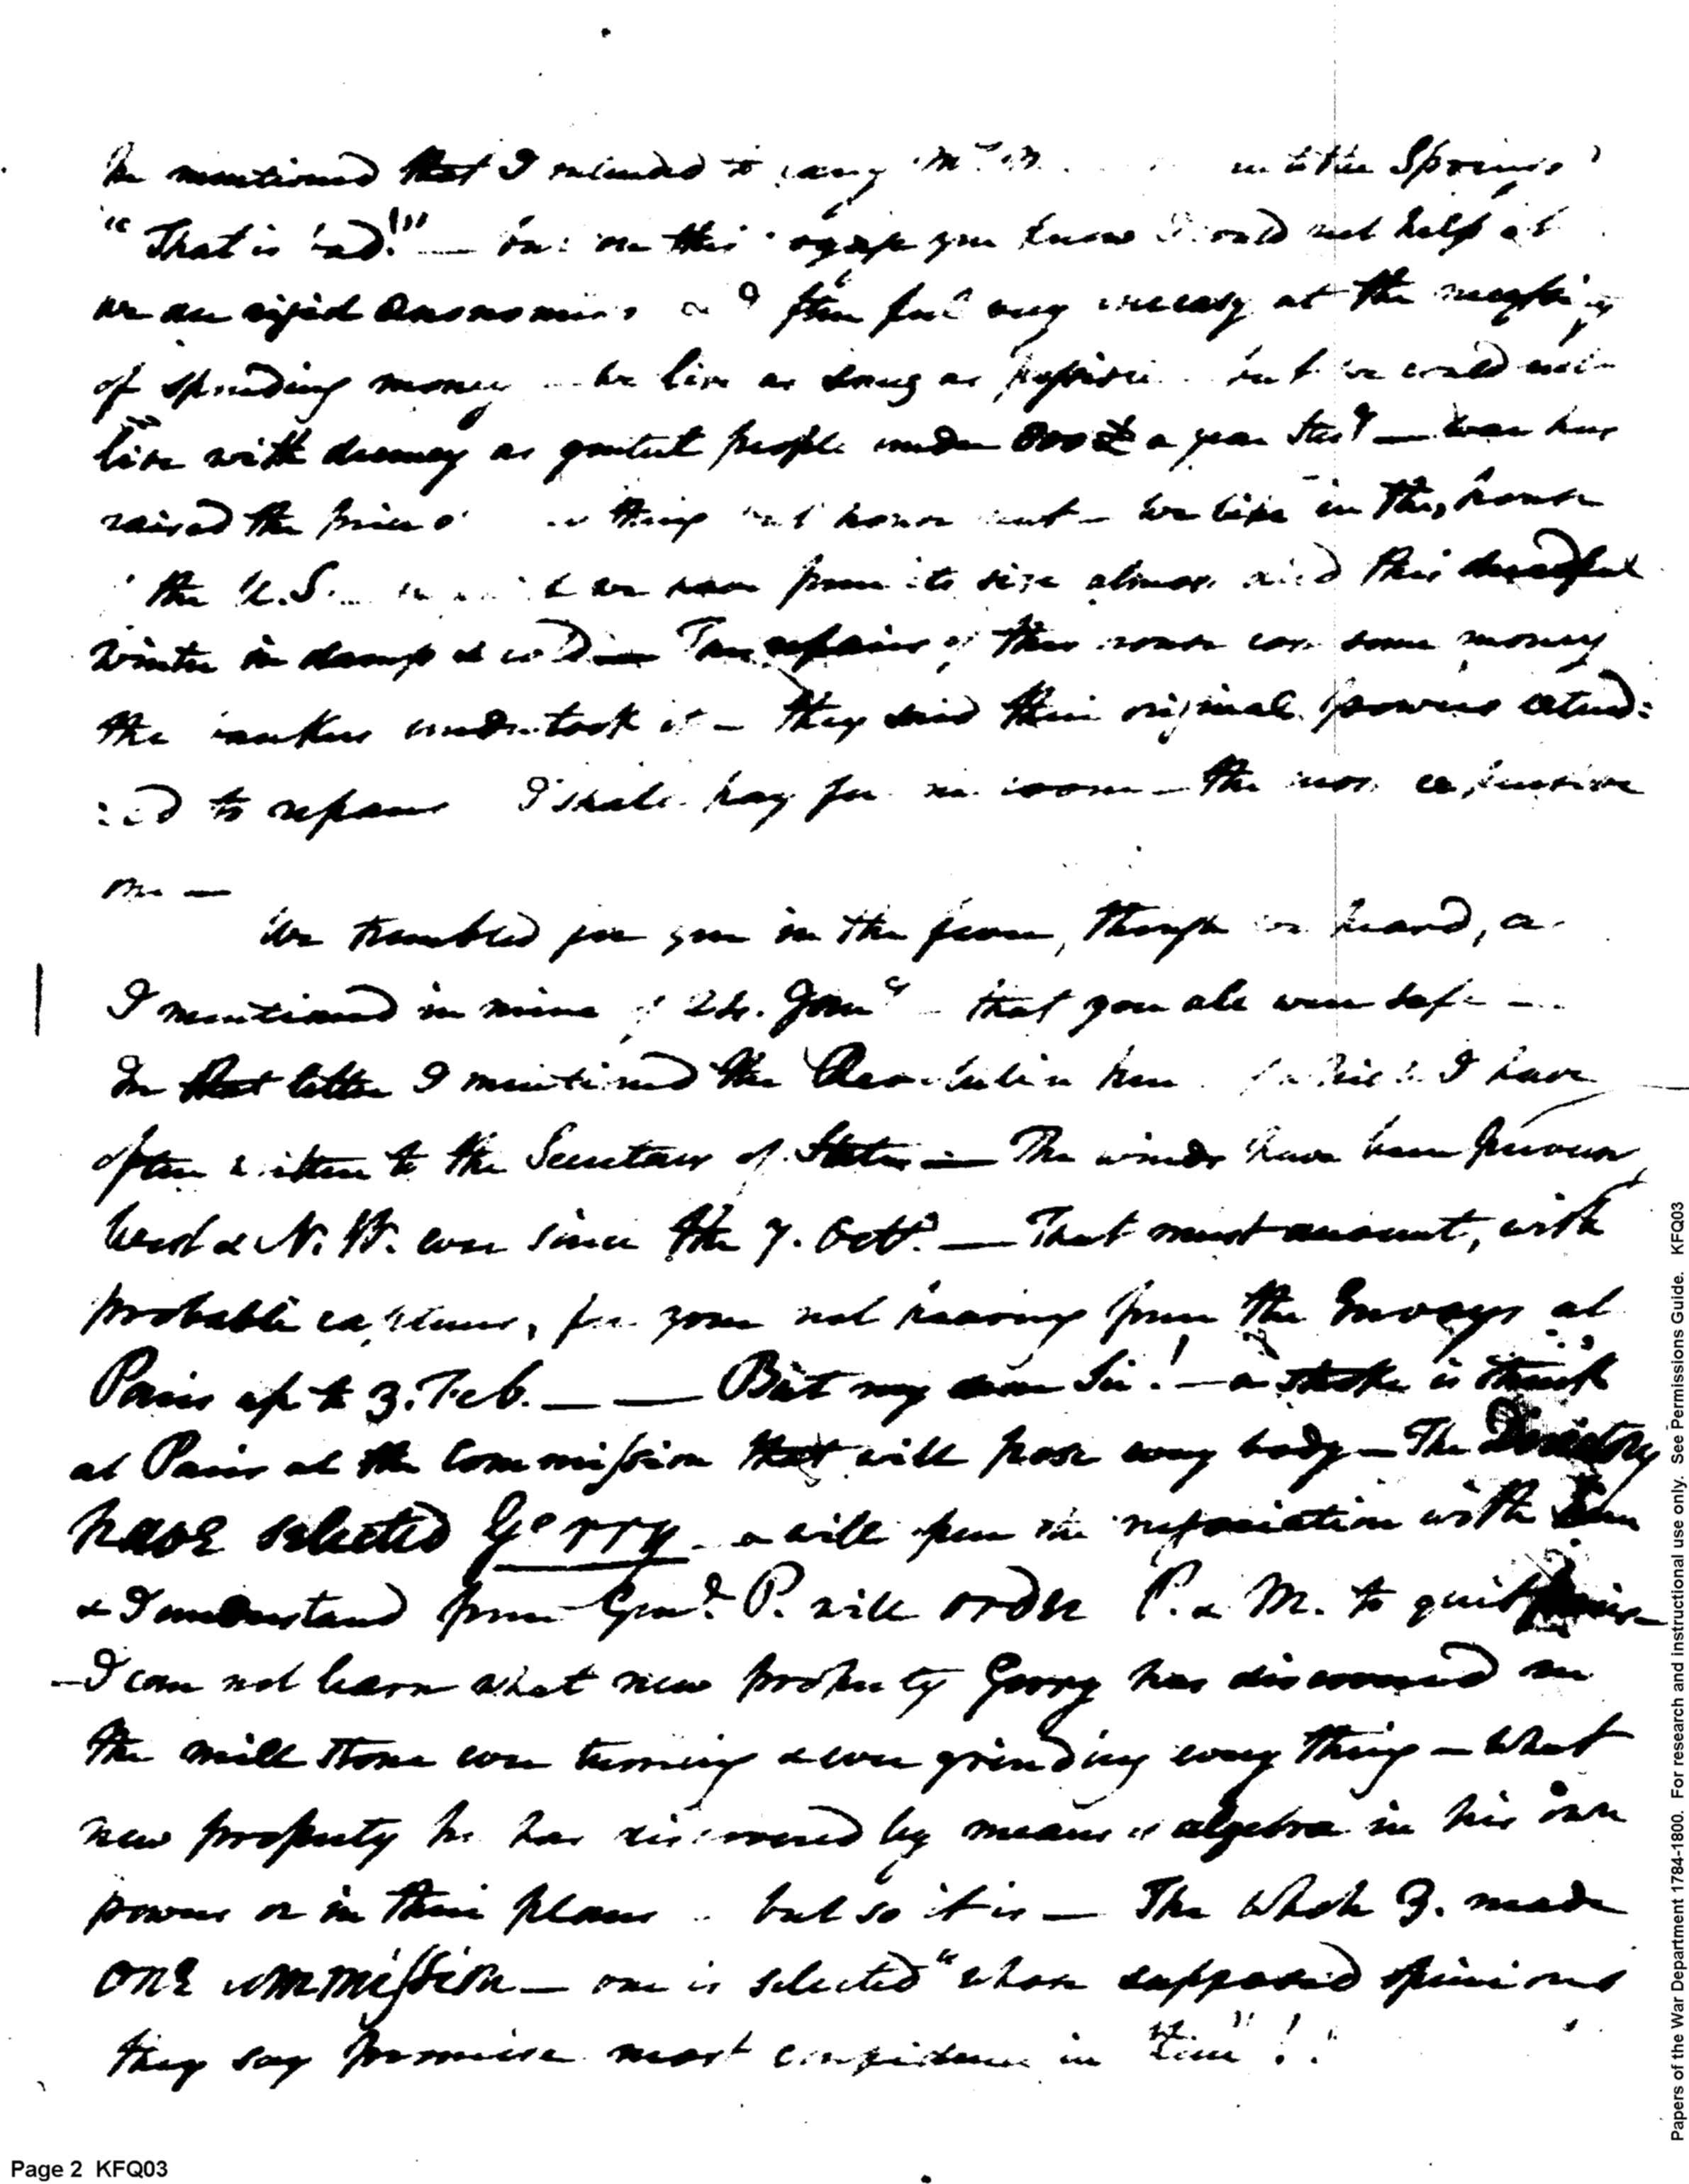 mentioned that I intended to carry Mrs. M. to the Springs
"That is bad!" — on this you know I could not help it
we are rigid œconomists & I often feel very uneasy at the necessity
of spending money — we live as snug as possible but we could not
live with decency as genteel people under a year Ster. — War has
raised the price of every thing but house rent — We live in the house
of the U.S. we have from its size almost died this dreadful
winter in damp & cold — The repairs of this house cost some money
the bankers undertook it — they said their original powers extend:
:ed to repairs I shall pay for one room — the most expensive
one —
We trembled for you in the fever, though we heard, as
I mentioned in mine of 24. Jany. — that you all were safe —
In that letter I mentioned the Revolution here of which I have
often written to the Secretary of State — The winds have been
West & N.W. ever since the 7. Octr. — That must account, with
probable captures, for your not hearing from the Envoys at
Paris up to 3. Feb. — — But my dear Sir! — a stroke is struck
at Paris at the Commission that will pose every body — The Directory
have selected Gerry — & will open the negociation with him
& I understand from Genl. P. will order P. & M. to quit Paris —
— I can not learn what new property Gerry has discovered in
the mill stone ever turning & ever grinding every thing — what
new property he has discovered by means of algebra in his own
powers or in their plans — but so it is — The whole 3. made
one commission — one is selected "whose supposed opinions
they say promise most confidence in him"!!
Page 2 KFQ03
Papers of the War Department 1784-1800. For research and instructional use only. See Permissions Guide. KFQ03